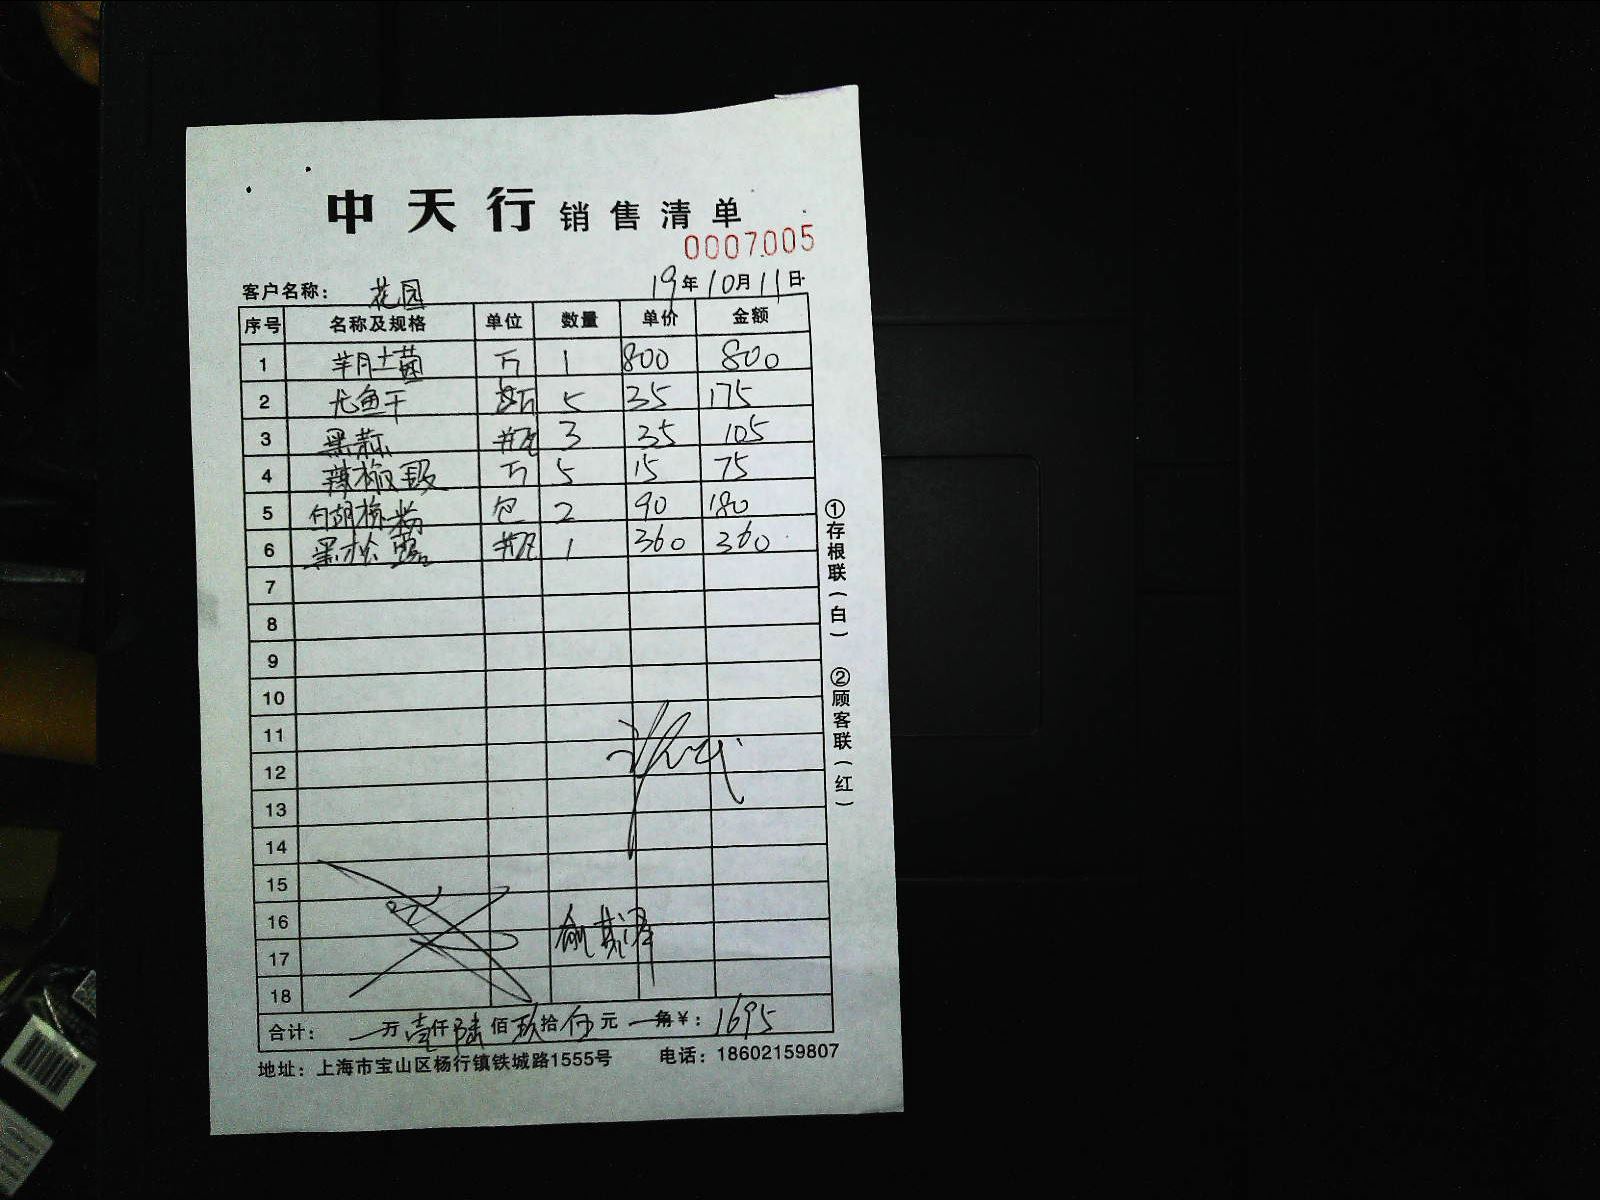 中天行 销售清单
0007005
客户名称： 花园 19年10月11日
序号 名称及规格 单位 数量 单价 金额
1 羊肚菌 斤 1 800 800
2 尤鱼干 斤 5 35 175
3 黑蒜 瓶 3 35 105
4 辣椒段 斤 5 15 75
5 白胡椒粉 包 2 90 180
6 黑松露 瓶 1 360 360
7
8
9
10
11
12
13
14
15
16
17
18
合计： 一万壹仟陆佰玖拾伍元一角￥：1695
地址：上海市宝山区杨行镇铁城路1555号 电话：18602159807
①存根联（白）
②顾客联（红）